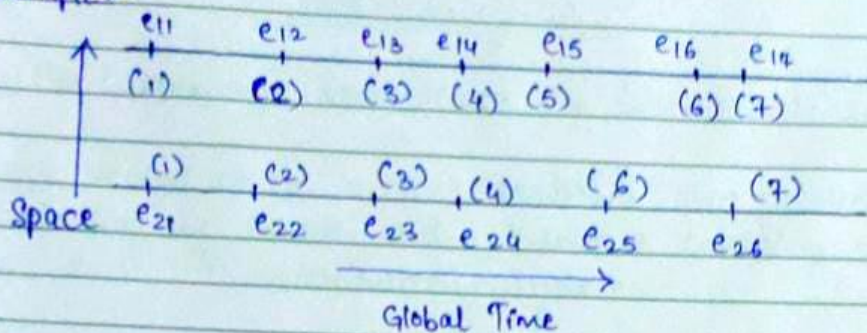 e11 e12 e13 e14 e15 e16 e17
(1) (2) (3) (4) (5) (6) (7)
(1) (2) (3) (4) (6) (7)
Space e21 e22 e23 e24 e25 e26
Global Time